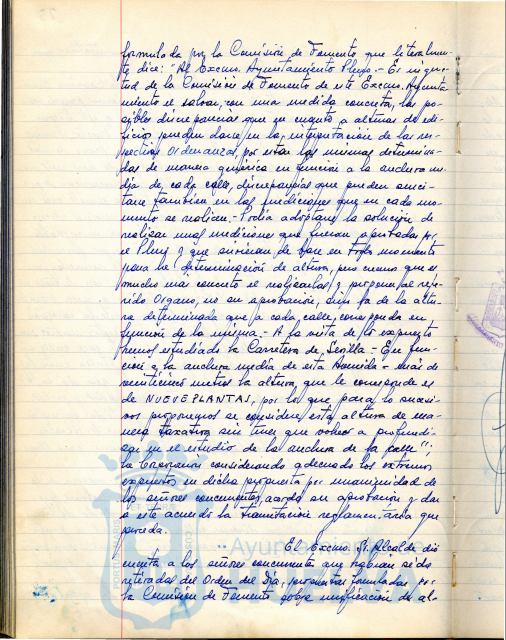 formulada por la Comisión de Fomento que literalmen-
te dice: "Al Excmo. Ayuntamiento Pleno.- Es inquie-
tud de la Comisión de Fomento de este Excmo. Ayunta-
miento el salvar, con una medida concreta, las po-
sibles discrepancias que en cuanto a alturas de edi-
ficios puedan darse en la interpretación de las res-
pectivas Ordenanzas, por estar las mismas determina-
das de manera genérica en función a la anchura me-
dia de cada calle, discrepancias que pueden susci-
tarse también en las mediciones que en cada mo-
mento se realicen.- Podía adoptarse la solución de
realizar unas mediciones que fueran aprobadas por
el Pleno y que sirvieran de base en todo momento
para la determinación de altura, pero creemos que es
mucho más concreto el realizarlas y proponer al refe-
rido Organo, no su aprobación, sino la de la altu-
ra determinada que a cada calle corresponda en
función de la misma.- A la vista de lo expuesto
hemos estudiado la Carretera de Sevilla.- En fun-
ción a la anchura media de esta Avenida - más de
veinticinco metros la altura que le corresponde es
de NUEVE PLANTAS, por lo que para lo sucesi-
vo proponemos se considere esta altura de ma-
nera taxativa sin tener que volver a profundi-
zar en el estudio de la anchura de la calle";
la Corporación considerando adecuados los extremos
expuestos en dicha propuesta por unanimidad de
los señores concurrentes, acordó su aprobación y dar
a este acuerdo la tramitación reglamentaria que
proceda.
El Excmo. Sr. Alcalde dió
cuenta a los señores concurrentes que habían sido
retiradas del Orden del Día, propuestas formuladas por
la Comisión de Fomento sobre unificación de al-
Ayuntamiento